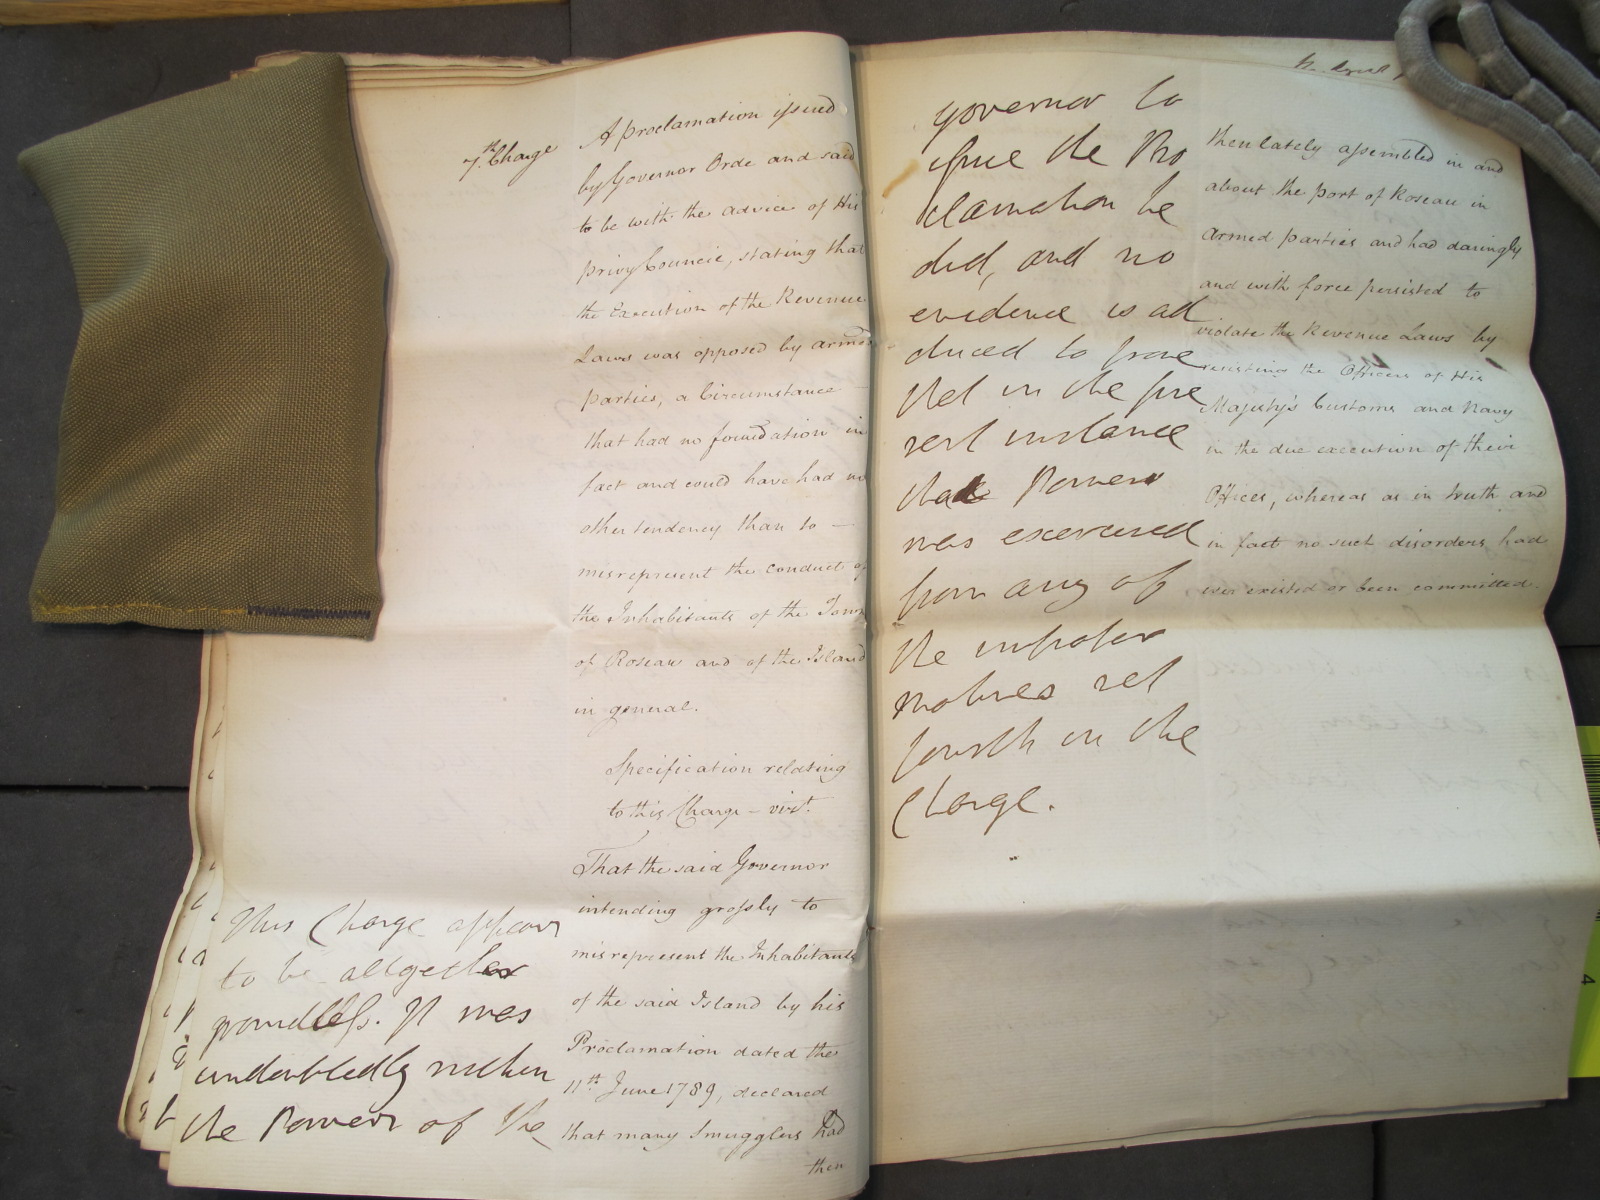 7th. Charge
A proclamation issued
by Governor Orde and said
to be with the advice of His
privy Council, stating that
the Execution of the Revenue
Laws was opposed by armed
parties, a Circumstance
that had no foundation in
fact and could have had no
other tendency than to —
misrepresent the conduct of
the Inhabitants of the Town
of Roseau and of the Island
in general.
Specification relating
to this Charge – vizt.
That the said Governor
intending grossly to
misrepresent the Inhabitants
of the said Island by his
Proclamation dated the
11th June 1789, declared
that many Smugglers had
then
This Charge appears
to be altogether
groundless. It was
undoubtedly within
the Powers of the
governor to
issue the Pro
clamation he
did, and no
evidence is ad
duced to prove
that in the pre
sent instance
that Power
was exercised
from any of
the improper
motives set
fourth in the
Charge.
then lately assembled in and
about the port of Roseau in
armed parties and had daringly
and with force persisted to
violate the Revenue Laws by
resisting the Officers of His
Majesty's Customs and Navy
in the due execution of their
Offices, whereas as in truth and
in fact no such disorders had
ever existed or been committed.
4